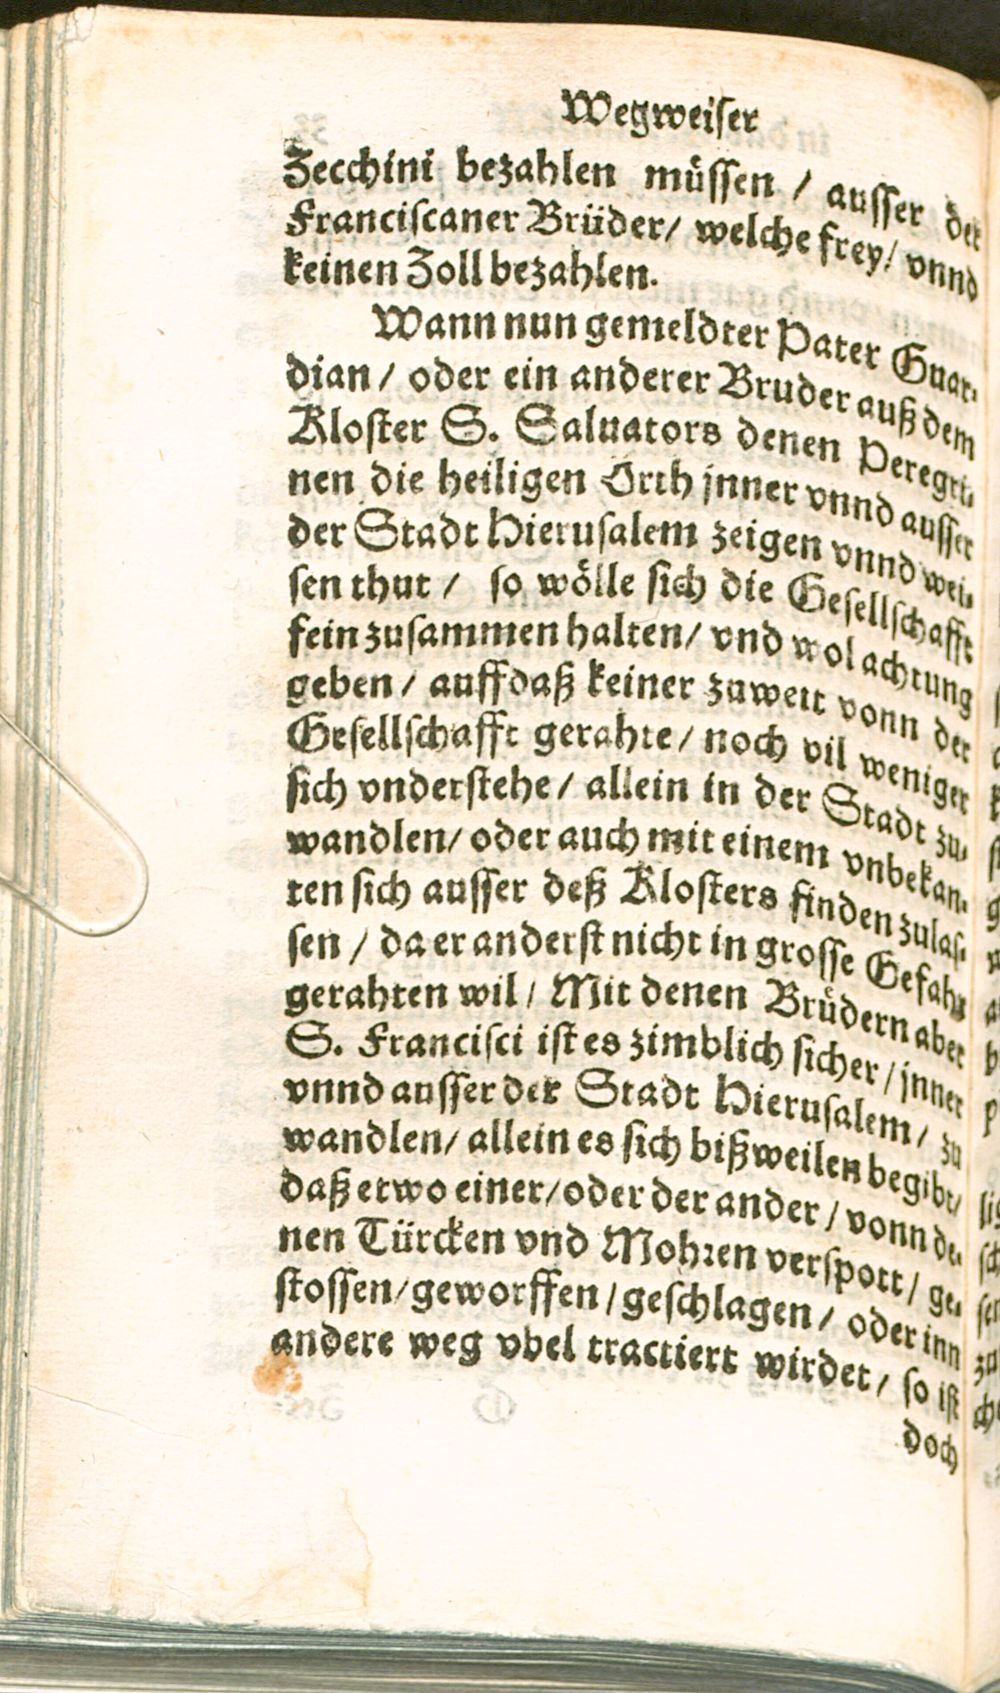 Wegweiser
Zecchini bezahlen müssen / ausser der
Franciscaner Brüder / welche frey / vnnd
keinen Zoll bezahlen.
Wann nun gemeldter Pater Guar-
dian / oder ein anderer Bruder auß dem
Kloster S. Saluators denen Peregri-
nen die heiligen Örth jnner vnnd ausser
der Stadt Hierusalem zeigen vnnd wei-
sen thut / so wölle sich die Gesellschafft
fein zusammen halten / vnd wol achtung
geben / auff daß keiner zuweit vonn der
Gesellschafft gerahte / noch vil weniger
sich vnderstehe / allein in der Stadt zu-
wandlen / oder auch mit einem vnbekan-
ten sich ausser deß Klosters finden zulas-
sen / da er anderst nicht in grosse Gefahr
gerahten wil / Mit denen Brüdern aber
S. Francisci ist es zimblich sicher / jnner
vnnd ausser der Stadt Hierusalem / zu
wandlen / allein es sich bißweilen begibt /
daß etwo einer / oder der ander / vonn de-
nen Türcken vnd Mohren verspott / ge-
stossen / geworffen / geschlagen / oder inn
andere weg vbel tractiert wirdet / so ist
doch